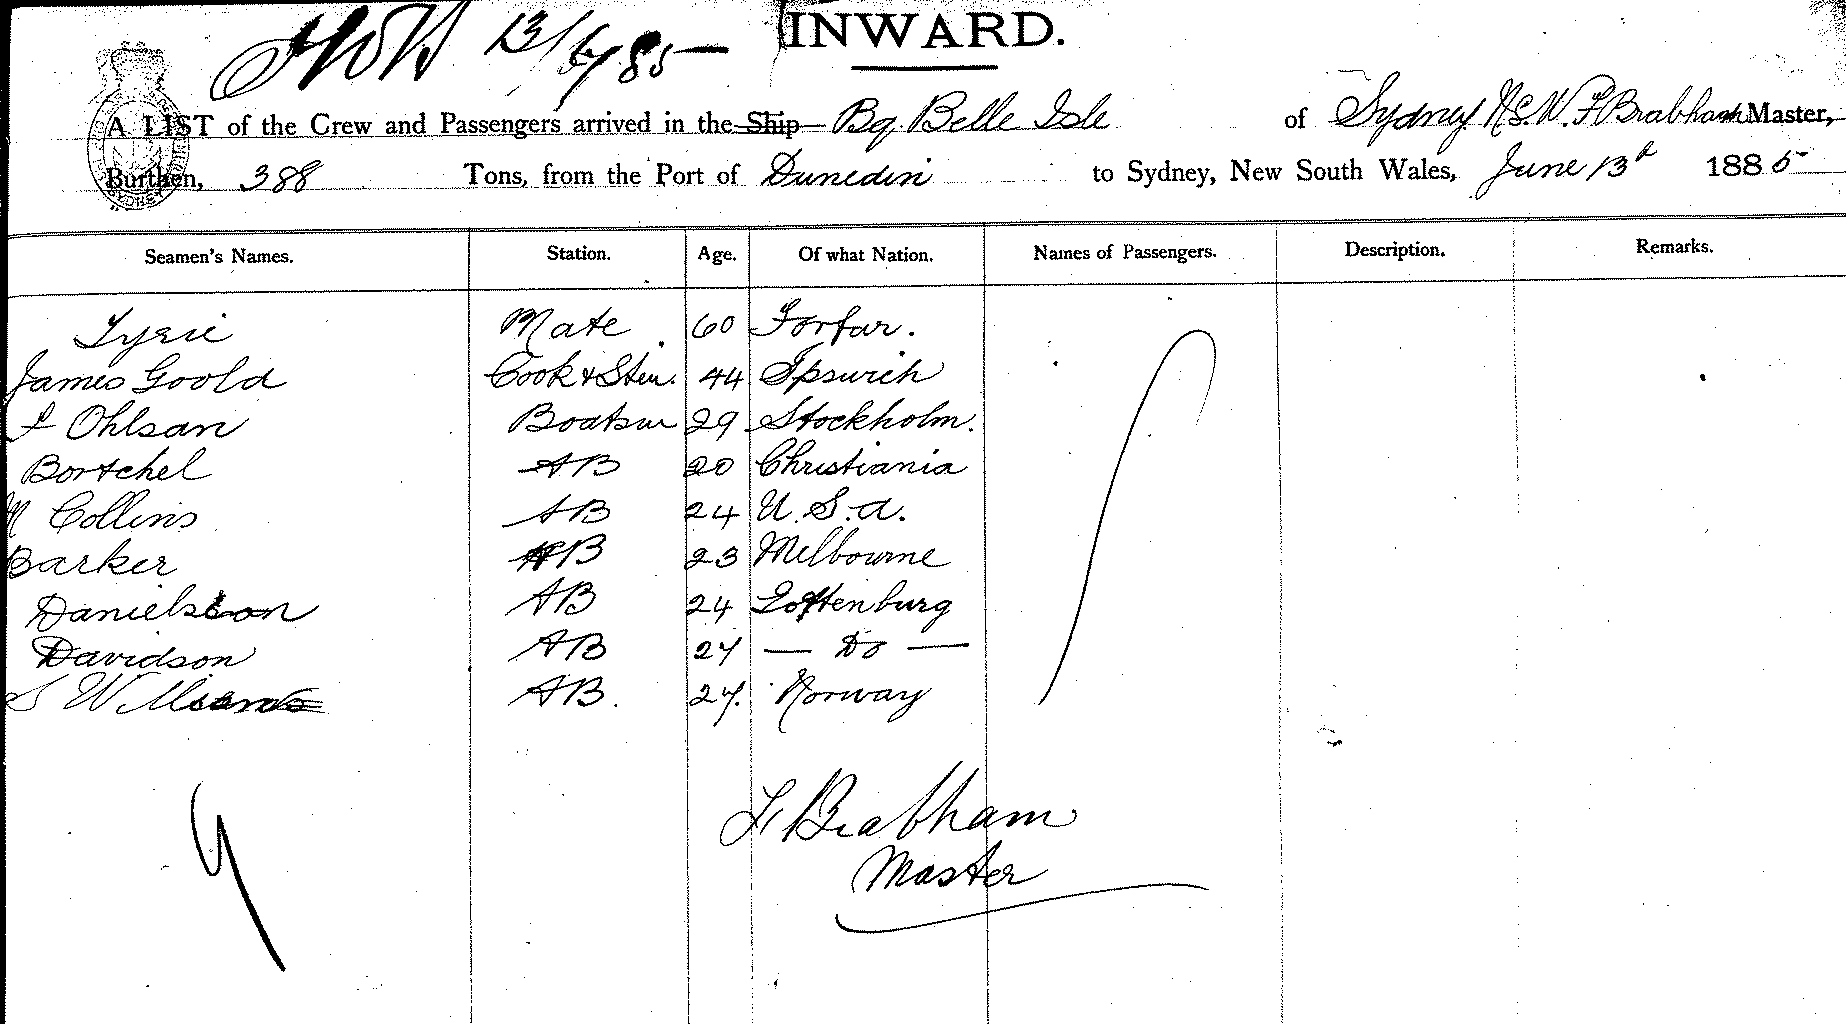 13/6/85
INWARD.
A LIST of the Crew and Passengers arrived in the Ship Bq Belle Isle of Sydney N.S.W. F Brabham Master,
Burthen, 388 Tons, from the Port of Dunedin to Sydney, New South Wales, June 13th 1885
Seamen's Names. Station. Age. Of what Nation. Names of Passengers. Description. Remarks.
Tyrie Mate 60 Forfar.
James Goold Cook & Stew. 44 Ipswich
Ohlsan Boatsn 29 Stockholm.
Bortchel AB 20 Christiania
M Collins AB 24 U.S.A.
Barker AB 23 Melbourne
Danielson AB 24 Gottenburg
Davidson AB 27 — Do —
S Williams AB. 27. Norway
9
F Brabham
Master